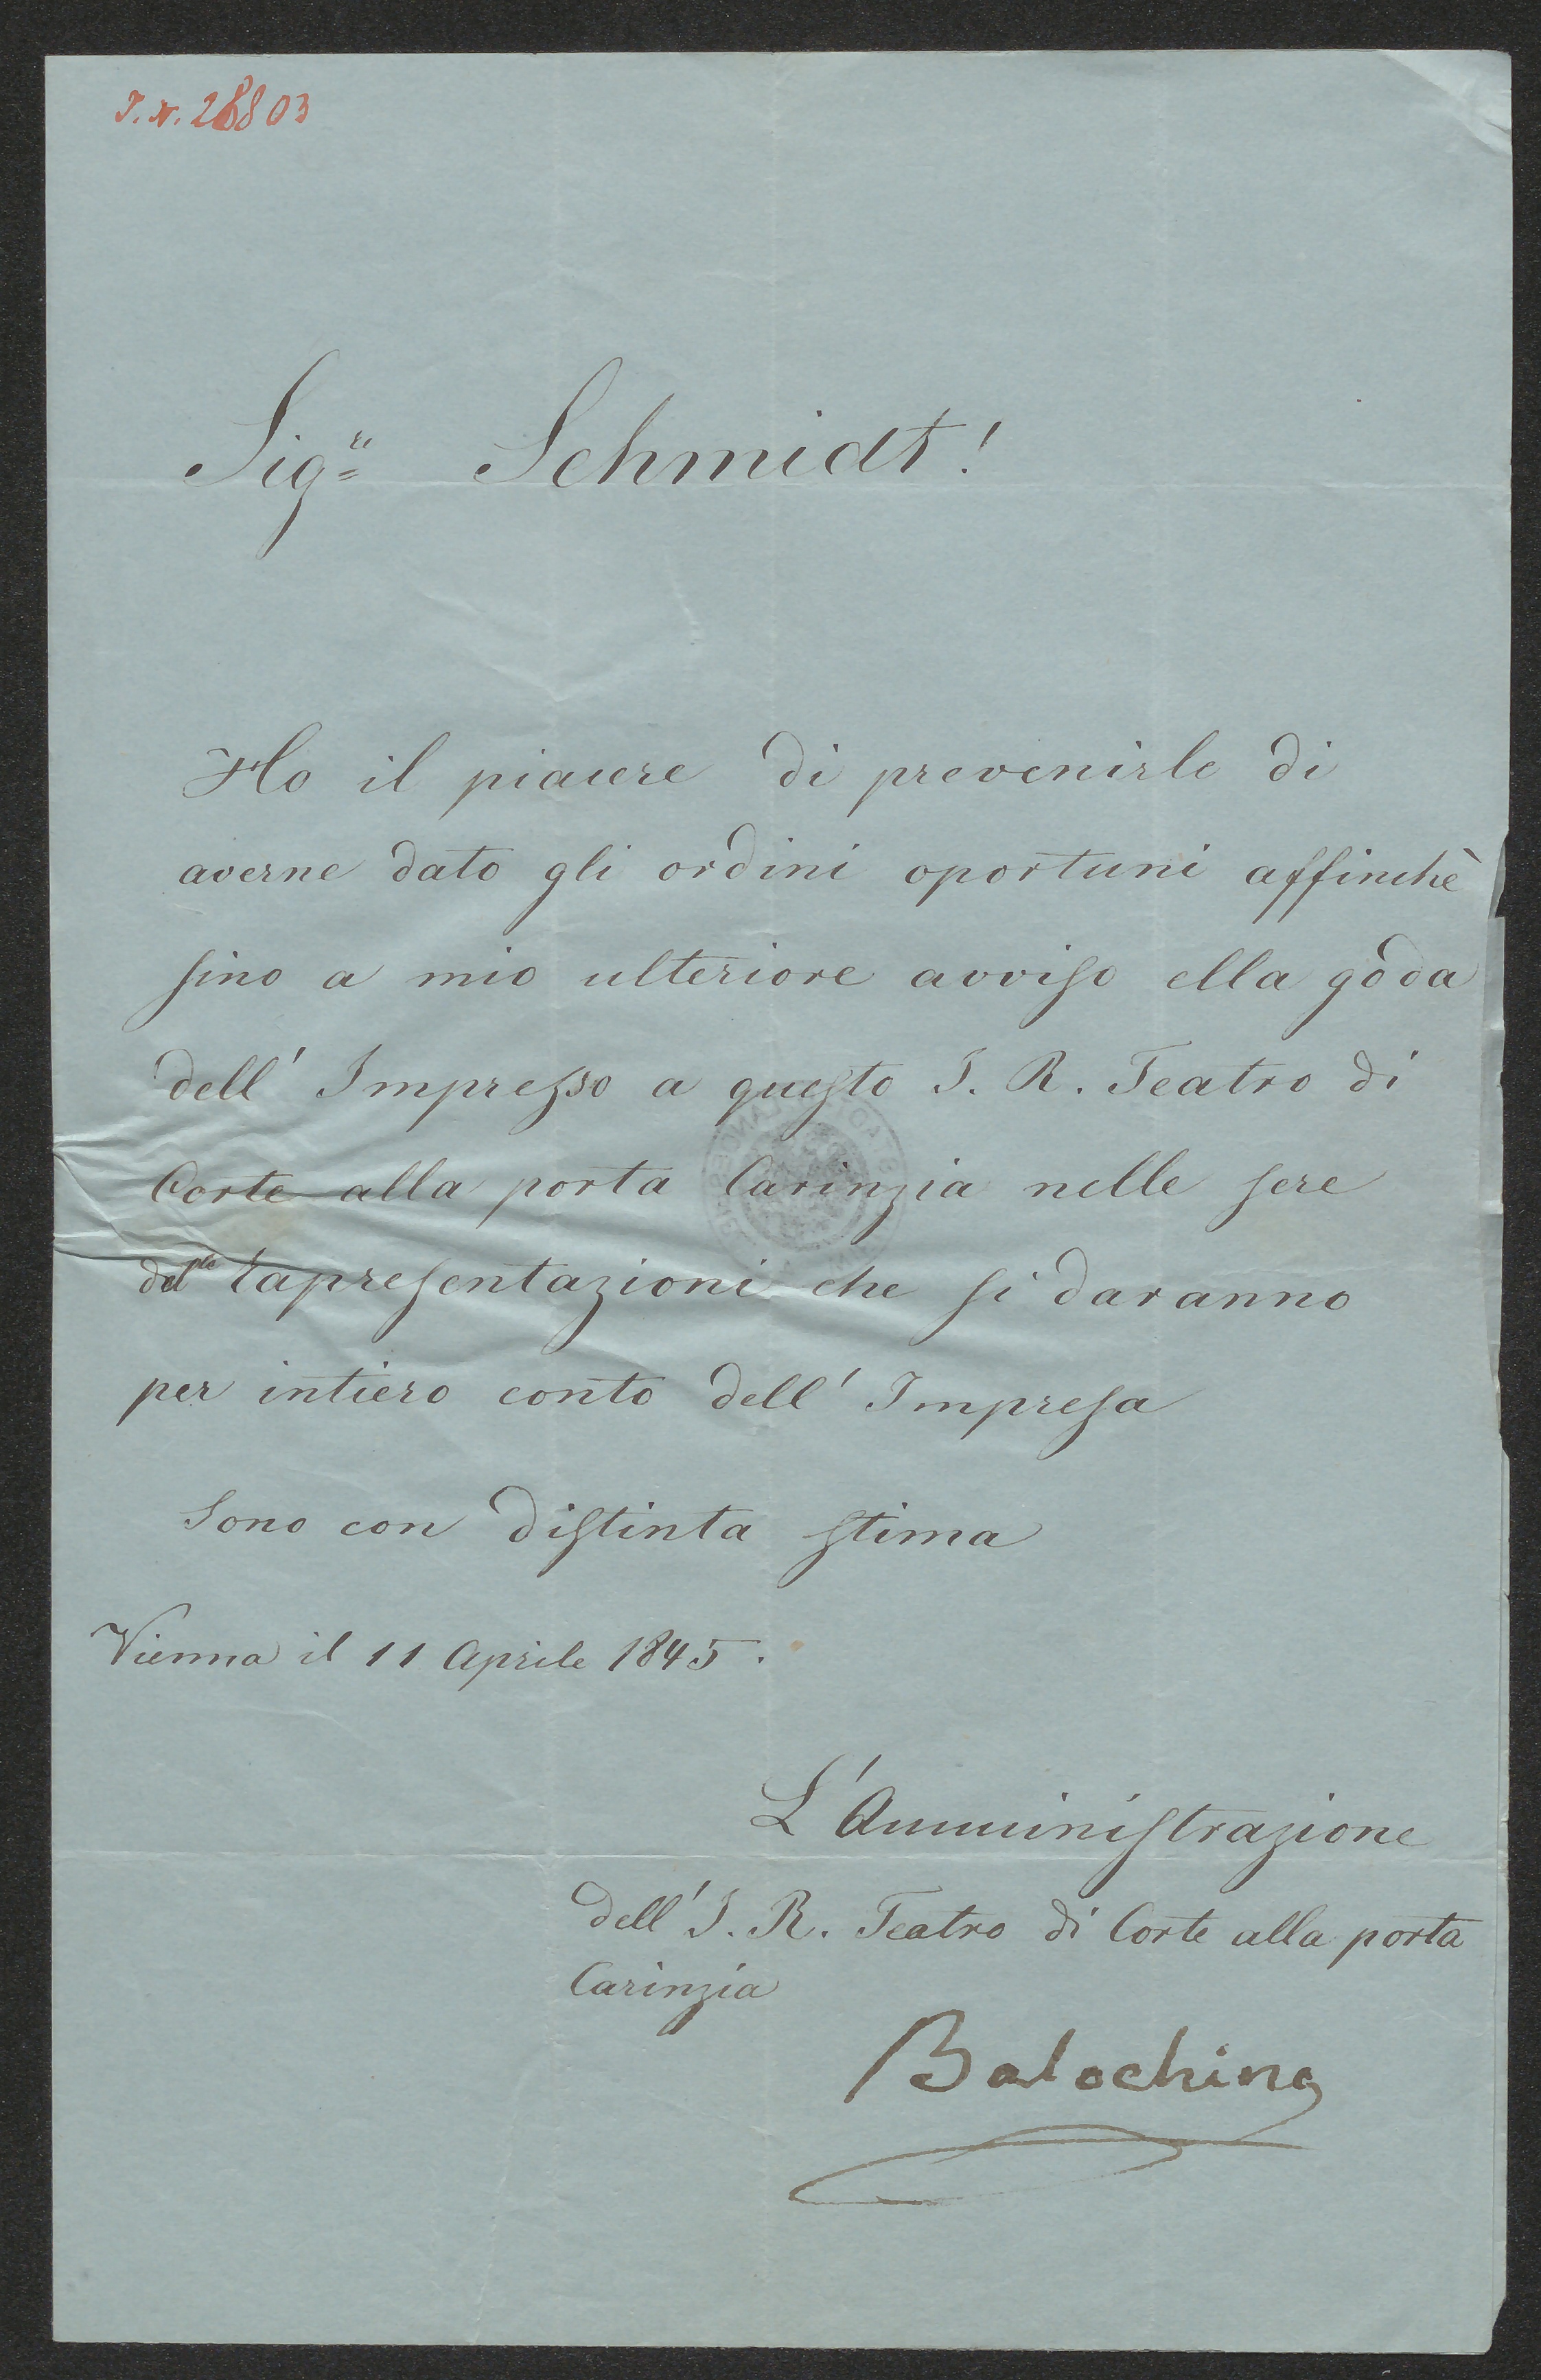 I. N. 28803
Sigre Schmidt!
Ho il piacere di prevenirle di
averne dato gli ordini oportuni affinchè
sino a mio ulteriore avviso ella goda
dell' Impresso a questo I. R. Teatro di
Corte alla porta Carinzia nelle sere
delle rapresentazioni che si daranno
per intiero conto dell' Impresa
Sono con distinta stima
Vienna il 11 Aprile 1845.
L'Amministrazione
dell' I. R. Teatro di Corte alla porta
Carinzia
Balochino